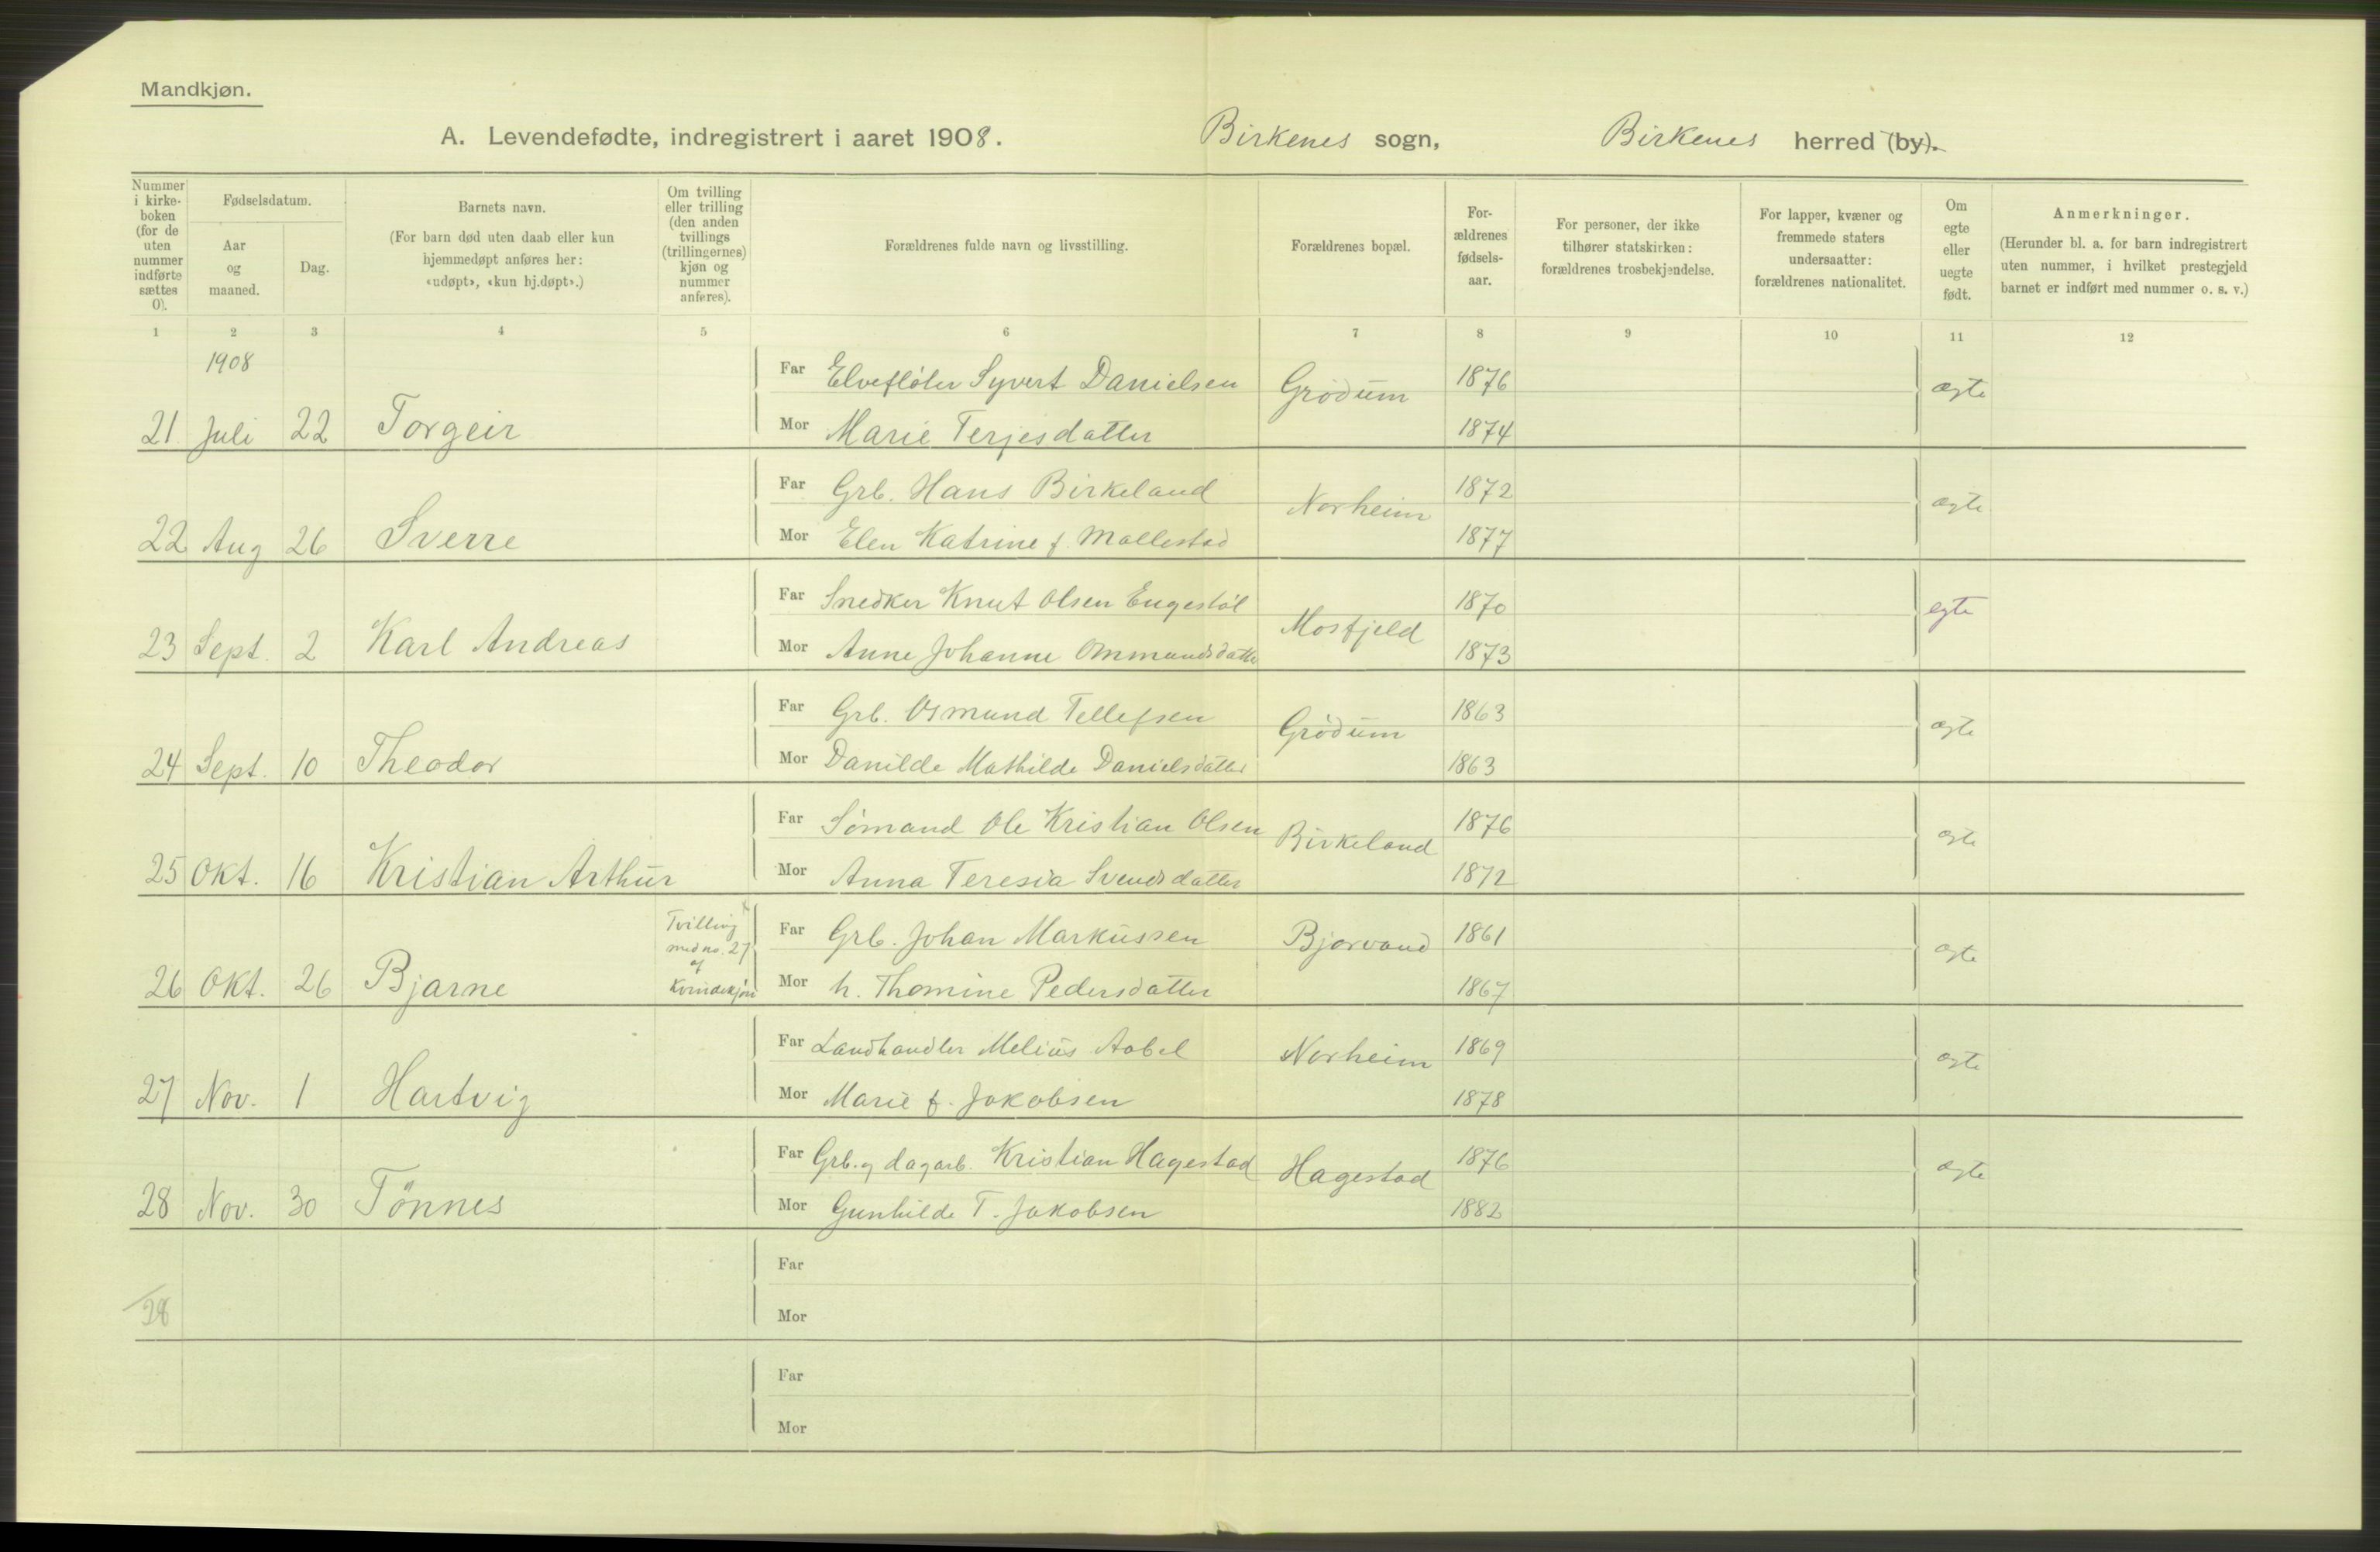 Mandkjøn.
A. Levendefødte, indregistrert i aaret 1908. Birkenes sogn, Birkenes herred (by).
Nummer i kirke- boken (for de uten nummer indførte sættes 0).
Fødselsdatum.
Aar og maaned.
Dag.
Barnets navn.
(For barn død uten daab eller kun hjemmedøpt anføres her: «udøpt», «kun hj.døpt».)
Om tvilling eller trilling (den anden tvillings (trillingernes) kjøn og nummer anføres).
Forældrenes fulde navn og livsstilling.
Forældrenes bopæl.
For- ældrenes fødsels- aar.
For personer, der ikke tilhører statskirken: forældrenes trosbekjendelse.
For lapper, kvæner og fremmede staters undersaatter: forældrenes nationalitet.
Om egte eller uegte født.
Anmerkninger.
(Herunder bl. a. for barn indregistrert uten nummer, i hvilket prestegjeld barnet er indført med nummer o. s. v.)
1 2 3 4 5 6 7 8 9 10 11 12
1908
Far Elvefløter Syvert Danielsen Grödum 1876 ægte
21 Juli 22 Torgeir Mor Marie Terjesdatter 1874
Far Grb. Hans Birkeland Norheim 1872 ægte
22 Aug 26 Sverre Mor Elen Katrine f. Mollestad 1877
Far Snedker Knut Olsen Engestöl Mosfjeld 1870 egte
23 Sept. 2 Karl Andreas Mor Anne Johanne Ommundsdatter 1873
Far Grb. Osmund Tellefsen Grödum 1863 ægte
24 Sept. 10 Theodor Mor Danilde Mathilde Danielsdatter 1863
Far Sömand Ole Kristian Olsen Birkeland 1876 ægte
25 Okt. 16 Kristian Arthur Mor Anna Teresia Svendsdatter 1872
Tvilling med no. 27 af Kvindekjön
Far Grb. Johan Markussen Bjorvand 1861 ægte
26 Okt. 26 Bjarne Mor h. Thomine Pedersdatter 1867
Far Landhandler Melius Aabel Norheim 1869 ægte
27 Nov. 1 Hartvig Mor Marie f. Jakobsen 1878
Far Grb. og dagarb. Kristian Hagestad Hagestad 1876 ægte
28 Nov. 30 Tönnes Mor Gunhilde T. Jakobsen 1882
Far
28 Mor
Far
Mor